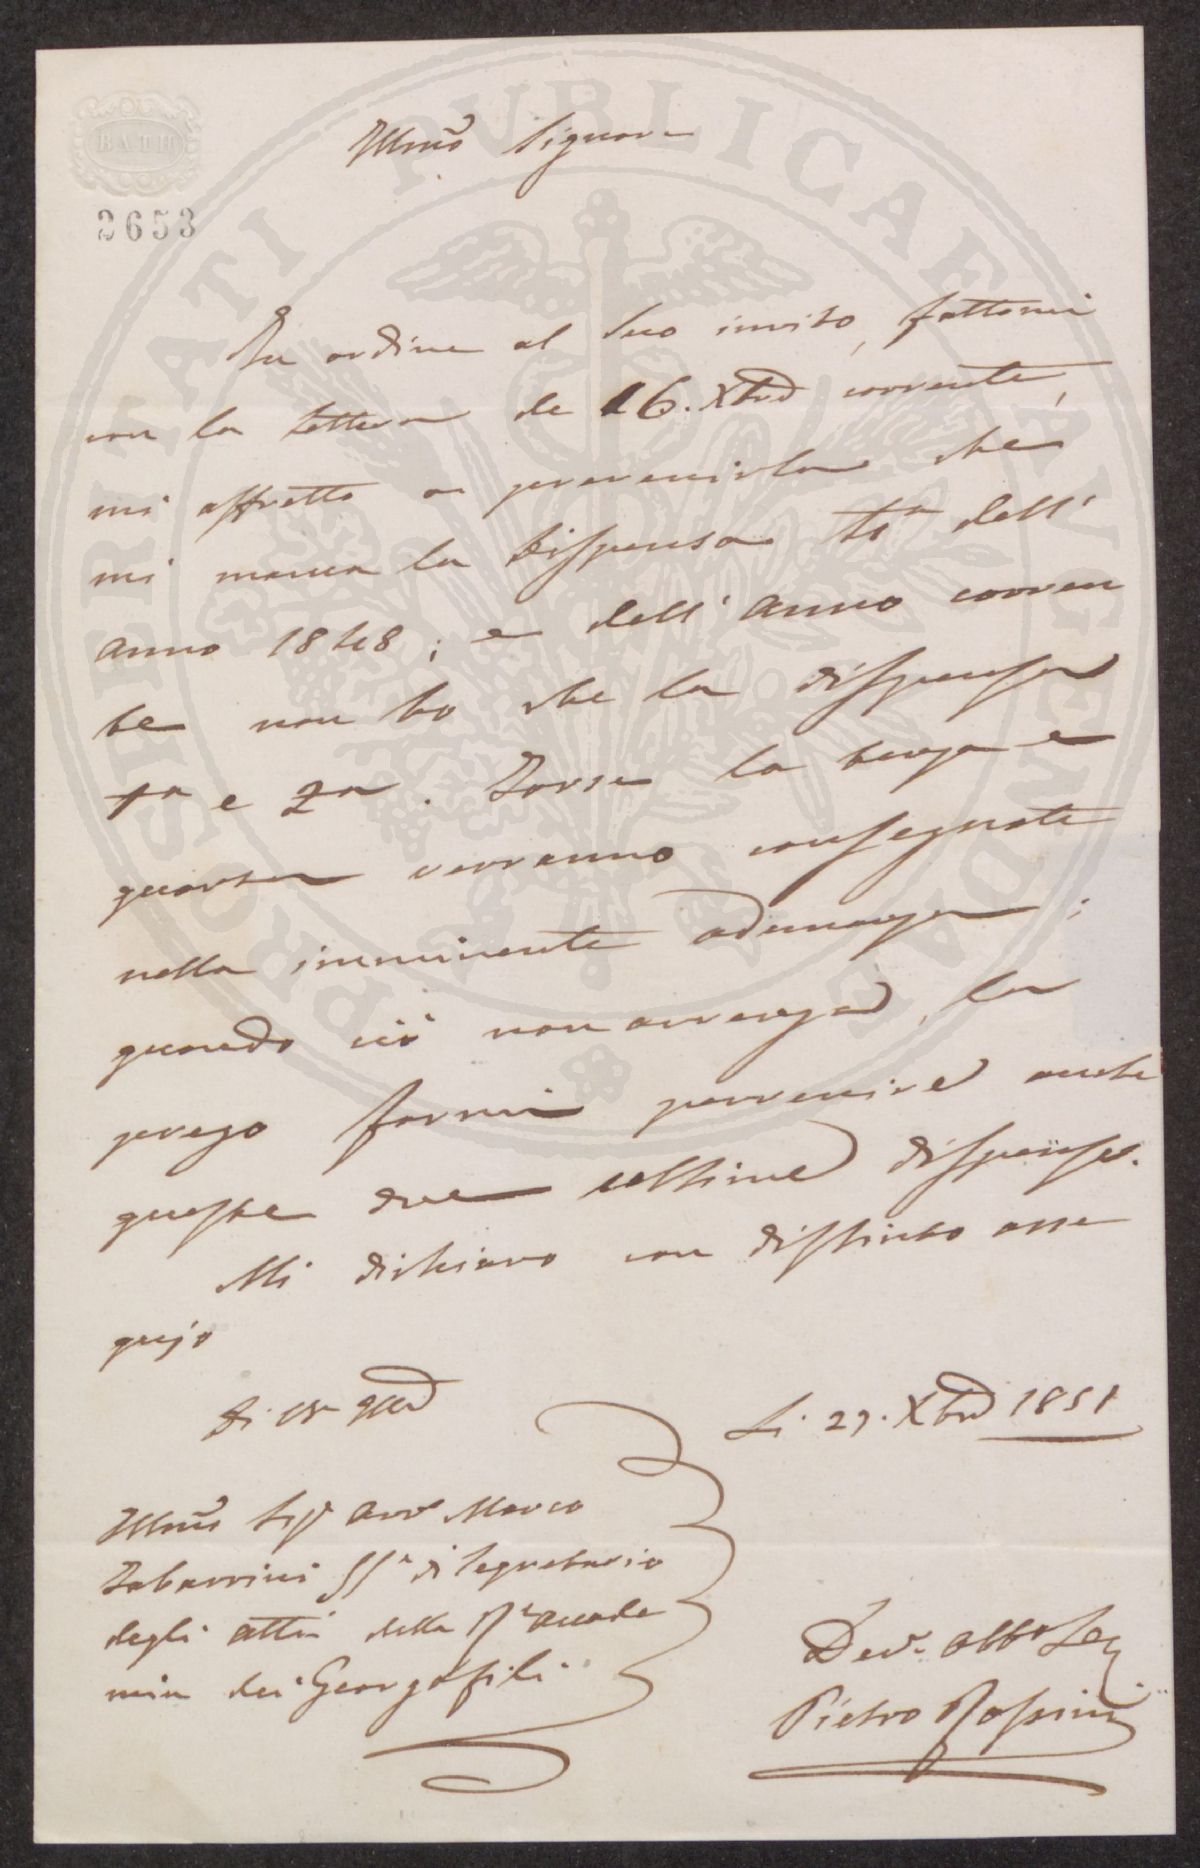 BATH
2653
PROSPERITATI PVBLICAE AVGENDAE
Illmõ Signore
In ordine al Suo invito, fattomi
con la lettera de 16. Xbre corrente,
mi affretto a prevenirla che
mi manca la dispensa dell'
anno 1848; e dell'anno corren
te non ho che la dispensa
1a e 2a. Forse la terza e
quarta verranno consegnate
nella imminente adunanza;
quando ciò non avvenga, la
prego farmi pervenire anche
queste due ultime dispense.
Mi dichiaro con distinto osse
quio
Li 27. Xbre 1851
Illmõ Sigr Avve Marco
Tabarrini di Segretario
degli atti della Re accade
mia dei Georgofili
Devo Obbo
Pietro Rossini